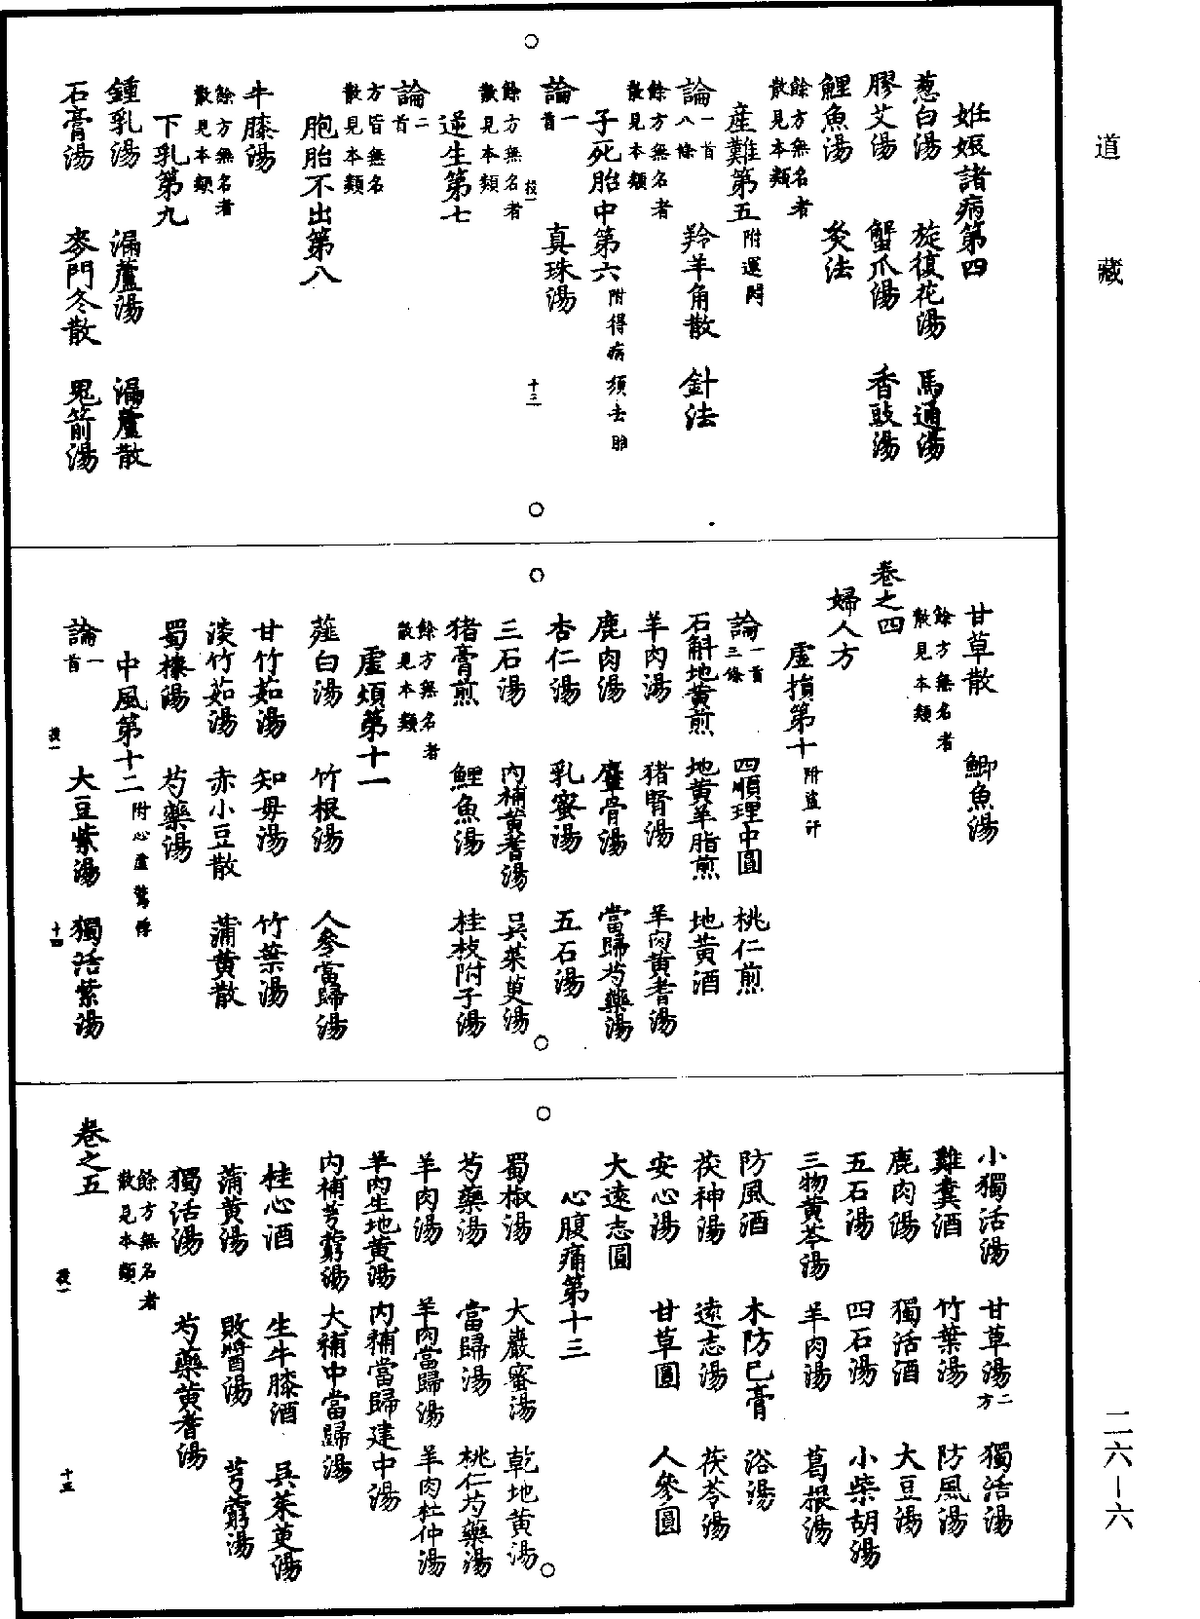 道藏
妊娠諸病第四
葱白湯　旋復花湯　馬通湯
膠艾湯　蟹爪湯　香豉湯
鯉魚湯　灸法
餘方無名者散見本類
産難第五附運悶
論一首八條　羚羊角散　針法
餘方無名者散見本類
子死胎中第六附得病須去胎
論一首　真珠湯
餘方無名者散見本類
投一　十三
逆生第七
論二首
方皆無名散見本類
胞胎不出第八
牛膝湯
餘方無名者散見本類
下乳第九
鍾乳湯　漏蘆湯　漏蘆散
石膏湯　麥門冬散　鬼箭湯
甘草散　鯽魚湯
餘方無名者散見本類
卷之四
婦人方
虛損第十附盜汗
論一首三條　四順理中圓　桃仁煎
石斛地黄煎　地黄羊脂煎　地黄酒
羊肉湯　猪腎湯　羊肉黄耆湯
鹿肉湯　麞骨湯　當歸芍藥湯
杏仁湯　乳蜜湯　五石湯
三石湯　內補黄耆湯　吳茱萸湯
猪膏煎　鯉魚湯　桂枝附子湯
餘方無名者散見本類
虛煩第十一
薤白湯　竹根湯　人參當歸湯
甘竹茹湯　知母湯　竹葉湯
淡竹茹湯　赤小豆散　蒲黄散
蜀椒湯　芍藥湯
中風第十二附心虛驚悸
論一首　大豆紫湯　獨活紫湯
投一　十四
小獨活湯　甘草湯二方　獨活湯
雞糞酒　竹葉湯　防風湯
鹿肉湯　獨活酒　大豆湯
五石湯　四石湯　小柴胡湯
三物黄芩湯　羊肉湯　葛根湯
防風酒　木防已膏　浴湯
茯神湯　遠志湯　茯苓湯
安心湯　甘草圓　人參圓
大遠志圓
心腹痛第十三
蜀椒湯　大巖蜜湯　乾地黄湯
芍藥湯　當歸湯　桃仁芍藥湯
羊肉湯　羊肉當歸湯　羊肉杜仲湯
羊肉生地黄湯　內補當歸建中湯
內補芎藭湯　大補中當歸湯
桂心酒　生牛膝酒　吳茱萸湯
蒲黄湯　敗醬湯　芎藭湯
獨活湯　芍藥黄耆湯
餘方無名者散見本類
卷之五
投一　十五
二六—六